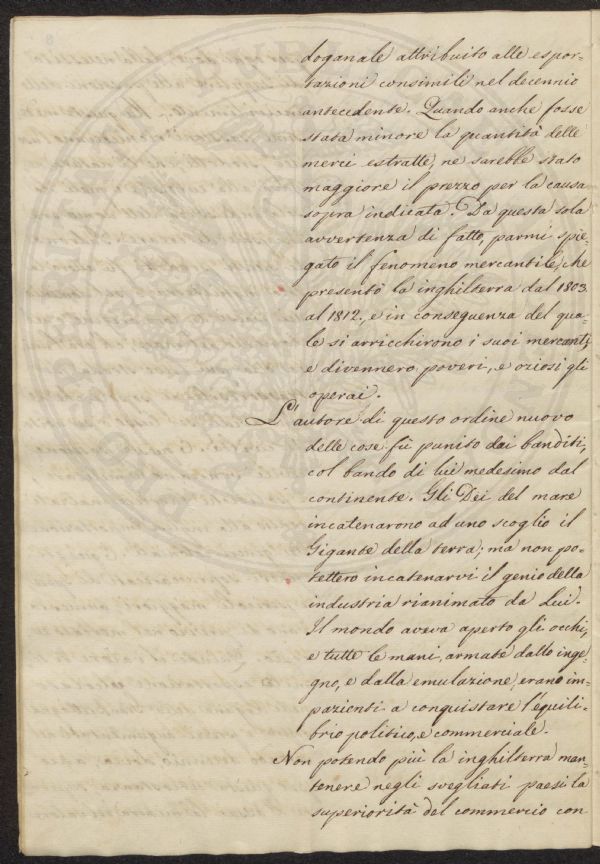 doganale attribuito alle espor-
tazioni consimili nel decennio
antecedente. Quando anche fosse
stata minore la quantità delle
merci estratte, ne sarebbe stato
maggiore il prezzo per la causa
sopra indicata. Da questa sola
avvertenza di fatto, parmi spie-
gato il fenomeno mercantile, che
presentò la inghilterra dal 1803.
al 1812., e in conseguenza del qua-
le si arricchirono i suoi mercanti,
e divennero poveri, e oziosi gli
operai.
L'autore di questo ordine nuovo
delle cose fù punito dai banditi,
col bando di lui medesimo dal
continente. Gli Dei del mare
incatenarono ad uno scoglio il
Gigante della terra; ma non po-
tettero incatenarvi il genio della
industria rianimato da Lui.
Il mondo aveva aperto gli occhi,
e tutte le mani, armate dallo inge-
gno, e dalla emulazione, erano im-
pazienti a conquistare l'equili-
brio politico, e commerciale.
Non potendo più la inghilterra man-
tenere negli svegliati paesi la
superiorità del commercio con